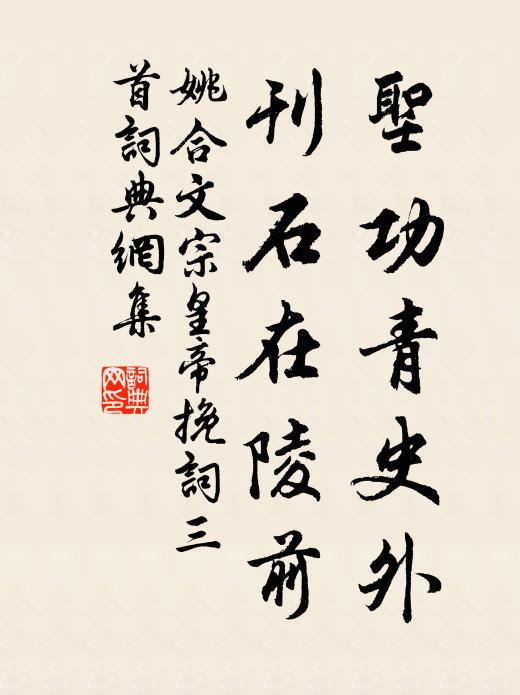 聖功青史外
刊石在陵前
姚合文宗皇帝挽詞三
首詞典網集
詞典
网印